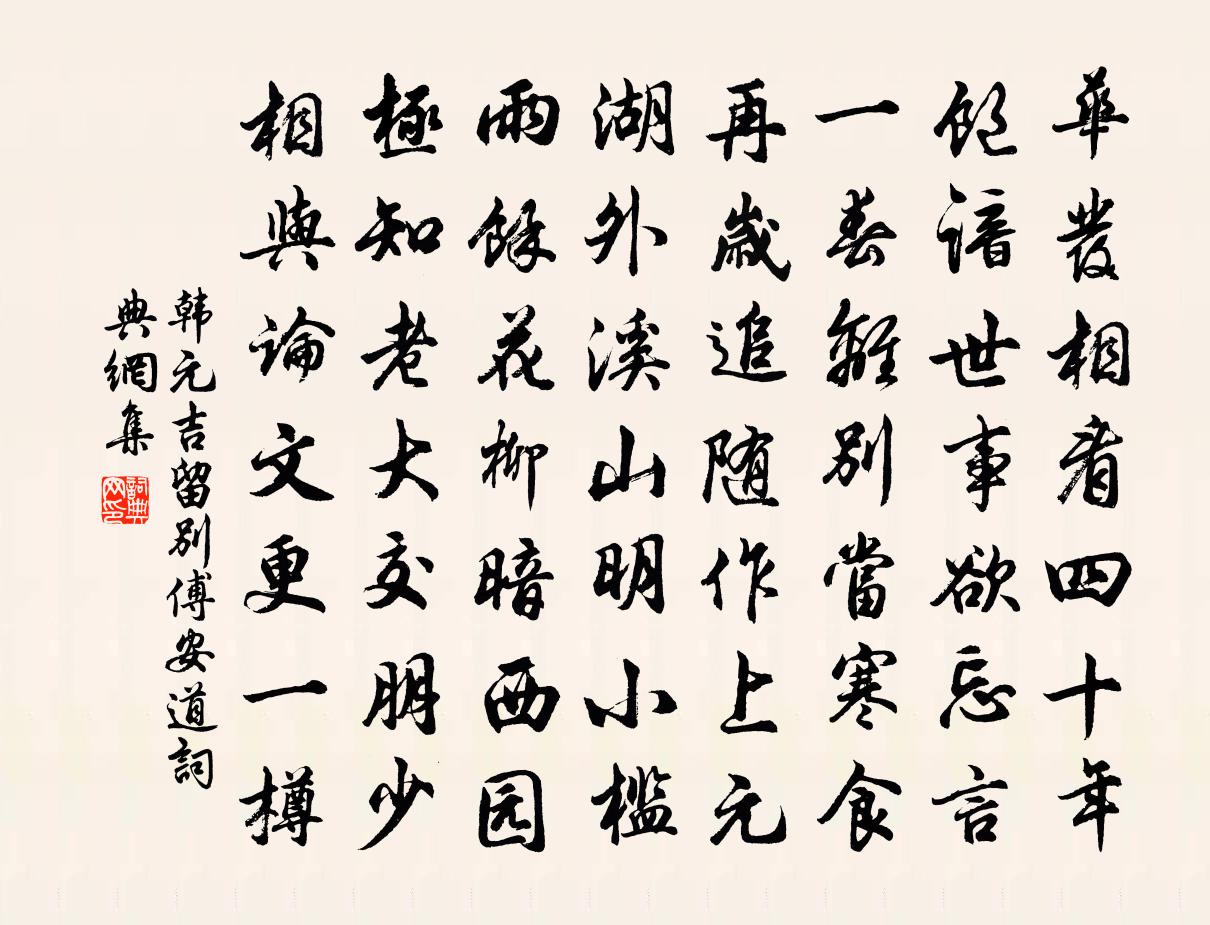 華發相看四十年
飽諳世事欲忘言
一春離別當寒食
再歲追随作上元
湖外溪山明小檻
雨餘花柳暗西园
極知老大交朋少
相與論文更一樽
韩元吉留别傅安道詞
典網集
詞典
网印